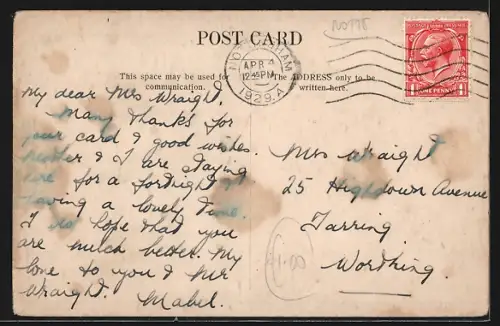 NOTTS
POST CARD
NOTTINGHAM
APR 4
12.45 PM
1929.A
POSTAGE REVENUE
1 ONE PENNY 1
This space may be used for
communication.
The ADDRESS only to be
written here.
My dear Mrs Wraight.
Many thanks for
your card & good wishes.
& I are staying
here for a fortnight &
having a lovely time.
I do hope that you
are much better. My
love to you & Mr
Wraight. Mabel.
Mrs Wraight
25 Highdown Avenue
Tarring
Worthing
1.00